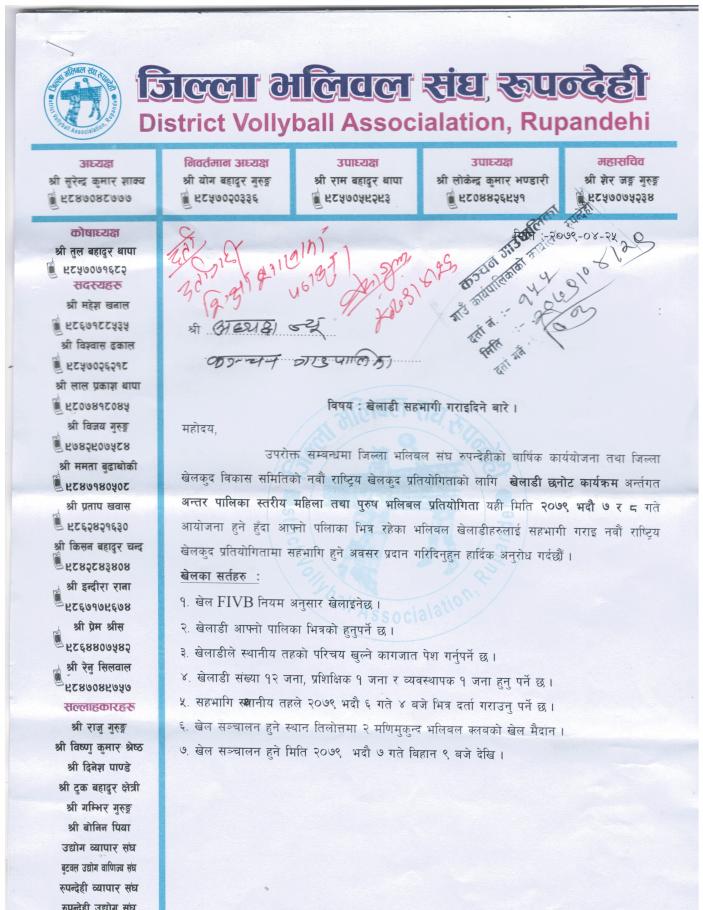 जिल्ला भलिवल संघ, रुपन्देही
District Vollyball Associalation, Rupandehi
अध्यक्ष
श्री सुरेन्द्र कुमार शाक्य
९८४७०४८७७७
निवर्तमान अध्यक्ष
श्री योग बहादुर गुरुङ्ग
९८५७०२०३३६
उपाध्यक्ष
श्री राम बहादुर थापा
९८५७०५९२९३
उपाध्यक्ष
श्री लोकेन्द्र कुमार भण्डारी
९८०४४२६९५१
महासचिव
श्री शेर जङ्ग गुरुङ्ग
९८५७०७५२३४
कोषाध्यक्ष
श्री तुल बहादुर थापा
९८५७०७१६८२
सदस्यहरु
श्री महेश खनाल
९८६७१८८५३५
श्री विश्वास ढकाल
९८५७०२६२१८
श्री लाल प्रकाश थापा
९८०७४१८०४५
श्री विजय गुरुङ्ग
९७४२९०७५८४
श्री ममता बुढाथोकी
९८४७१४०५०८
श्री प्रताप खवास
९८६२४२१६३०
श्री किसन बहादुर चन्द
९८४२८४३४०४
श्री इन्दीरा राना
९८६७१७९६७४
श्री प्रेम श्रीस
९८६४४०७५४२
श्री रेनु सिलवाल
९८४७०४९७५७
सल्लाहकारहरु
श्री राजु गुरुङ्ग
श्री विष्णु कुमार श्रेष्ठ
श्री दिनेश पाण्डे
श्री टुक बहादुर क्षेत्री
श्री गम्भिर गुरुङ्ग
श्री बोनिन पिया
उद्योग व्यापार संघ
बुटवल उद्योग वाणिज्य संघ
रुपन्देही व्यापार संघ
रुपन्देही उद्योग संघ
:-२०७९-०४-२५
कञ्चन गाउँपालिका
गाउँ कार्यपालिकाको कार्यालय रुपन्देही
दर्ता नं. :- १५५
मिति :-
दर्ता गर्ने :-
श्री अध्यक्ष ज्यू
कञ्चन गाउपालिका
विषय : खेलाडी सहभागी गराइदिने बारे ।
महोदय,
उपरोक्त सम्बन्धमा जिल्ला भलिबल संघ रुपन्देहीको बार्षिक कार्ययोजना तथा जिल्ला
खेलकुद विकास समितिको नवौं राष्ट्रिय खेलकुद प्रतियोगिताको लागि खेलाडी छनोट कार्यक्रम अर्न्तगत
अन्तर पालिका स्तरीय महिला तथा पुरुष भलिबल प्रतियोगिता यही मिति २०७९ भदौ ७ र ८ गते
आयोजना हुने हुँदा आफ्नो पलिाका भित्र रहेका भलिबल खेलाडीहरुलाई सहभागी गराइ नवौं राष्ट्रिय
खेलकुद प्रतियोगितामा सहभागि हुने अवसर प्रदान गरिदिनुहुन हार्दिक अनुरोध गर्दछौं ।
खेलका सर्तहरु :
१. खेल FIVB नियम अनुसार खेलाइनेछ ।
२. खेलाडी आफ्नो पालिका भित्रको हुनुपर्ने छ ।
३. खेलाडीले स्थानीय तहको परिचय खुल्ने कागजात पेश गर्नुपर्ने छ ।
४. खेलाडी संख्या १२ जना, प्रशिक्षिक १ जना र व्यवस्थापक १ जना हुनु पर्ने छ ।
५. सहभागि स्थानीय तहले २०७९ भदौ ६ गते ४ बजे भित्र दर्ता गराउनु पर्ने छ ।
६. खेल सञ्चालन हुने स्थान तिलोत्तमा २ मणिमुकुन्द भलिबल क्लबको खेल मैदान ।
७. खेल सञ्चालन हुने मिति २०७९ भदौ ७ गते बिहान ९ बजे देखि ।